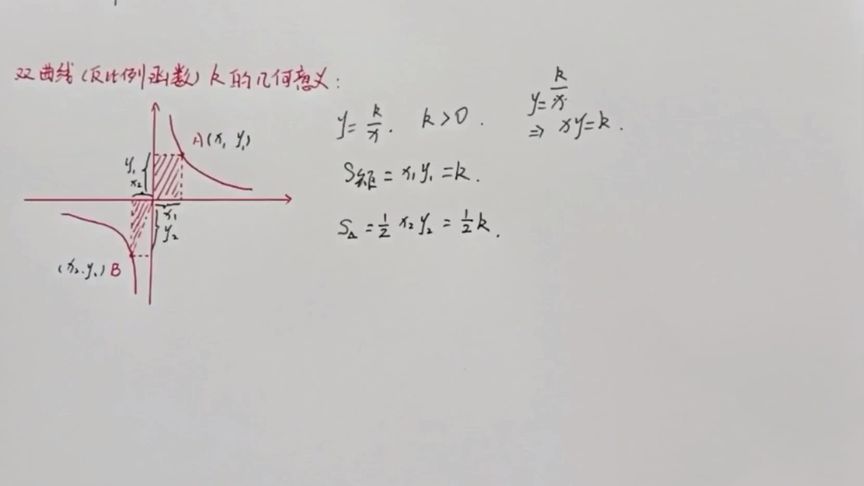 双曲线(反比例函数) k的几何意义:
y=k/x. k>0.
y=k/x
⇒ xy=k.
S矩=x₁y₁=k.
S△=1/2 x₂y₂=1/2 k.
A(x₁ y₁)
y₁
x₂
x₁
y₂
(x₂.y₂) B